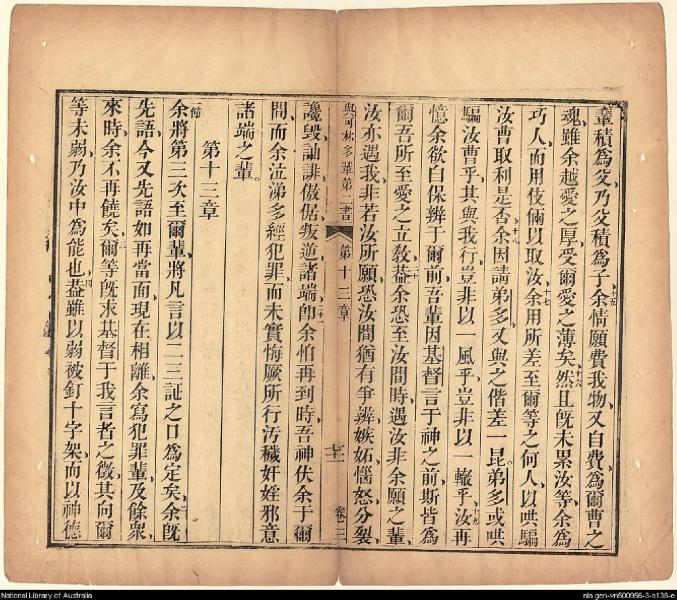 童積為父乃父積為子余情愿費我物又自費為爾曹之
魂雖余越愛之厚受爾愛之薄矣然且既未累汝等余為
巧人而用伎倆以取汝余用所差至爾等之何人以哄騙
汝曹取利是否余因請弟多又與之偕差一昆弟多或哄
騙汝曹乎其與我行豈非以一風乎豈非以一轍乎汝再
憶余欲自保辨于爾前吾輩因基督言于神之前斯皆為
爾吾所至愛之立教葢余恐至汝間時遇汝非余願之輩
汝亦遇我非若汝所願恐汝間猶有爭辨嫉妬惱怒分裂
與可林多輩第二書 第十三章 卷三
讒毀訕誹傲倨叛逆諸端卽余怕再到時吾神伏余于爾
間而余泣涕多經犯罪而未實悔厥所行汚穢奸婬邪意
諸端之輩
第十三章
一節余將第三次至爾輩將凡言以二三証之口為定矣余既
先語今又先語如再當面現在相離余寫犯罪輩及餘衆
來時余不再饒矣爾等既求基督于我言者之徵其向爾
等未弱乃汝中為能也葢雖以弱被釘十字架而以神德
National Library of Australia
nla.gen-vn500956-3-s138-e